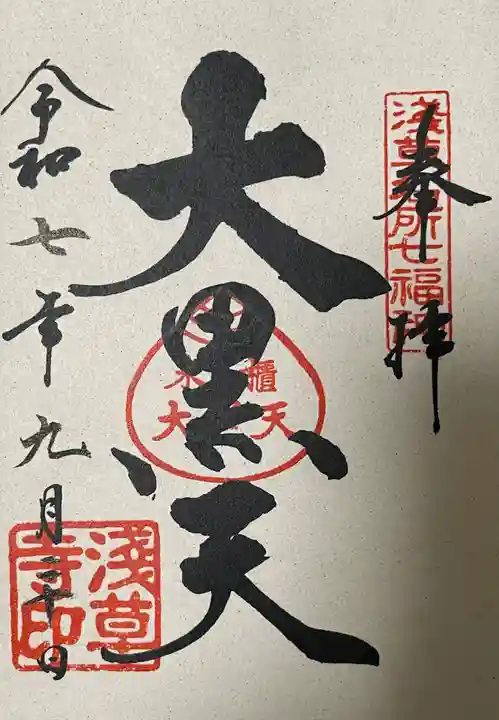 奉拝
浅草名所七福神
大黒天
米櫃
大黒天
令和七年九月三十日
浅草寺印